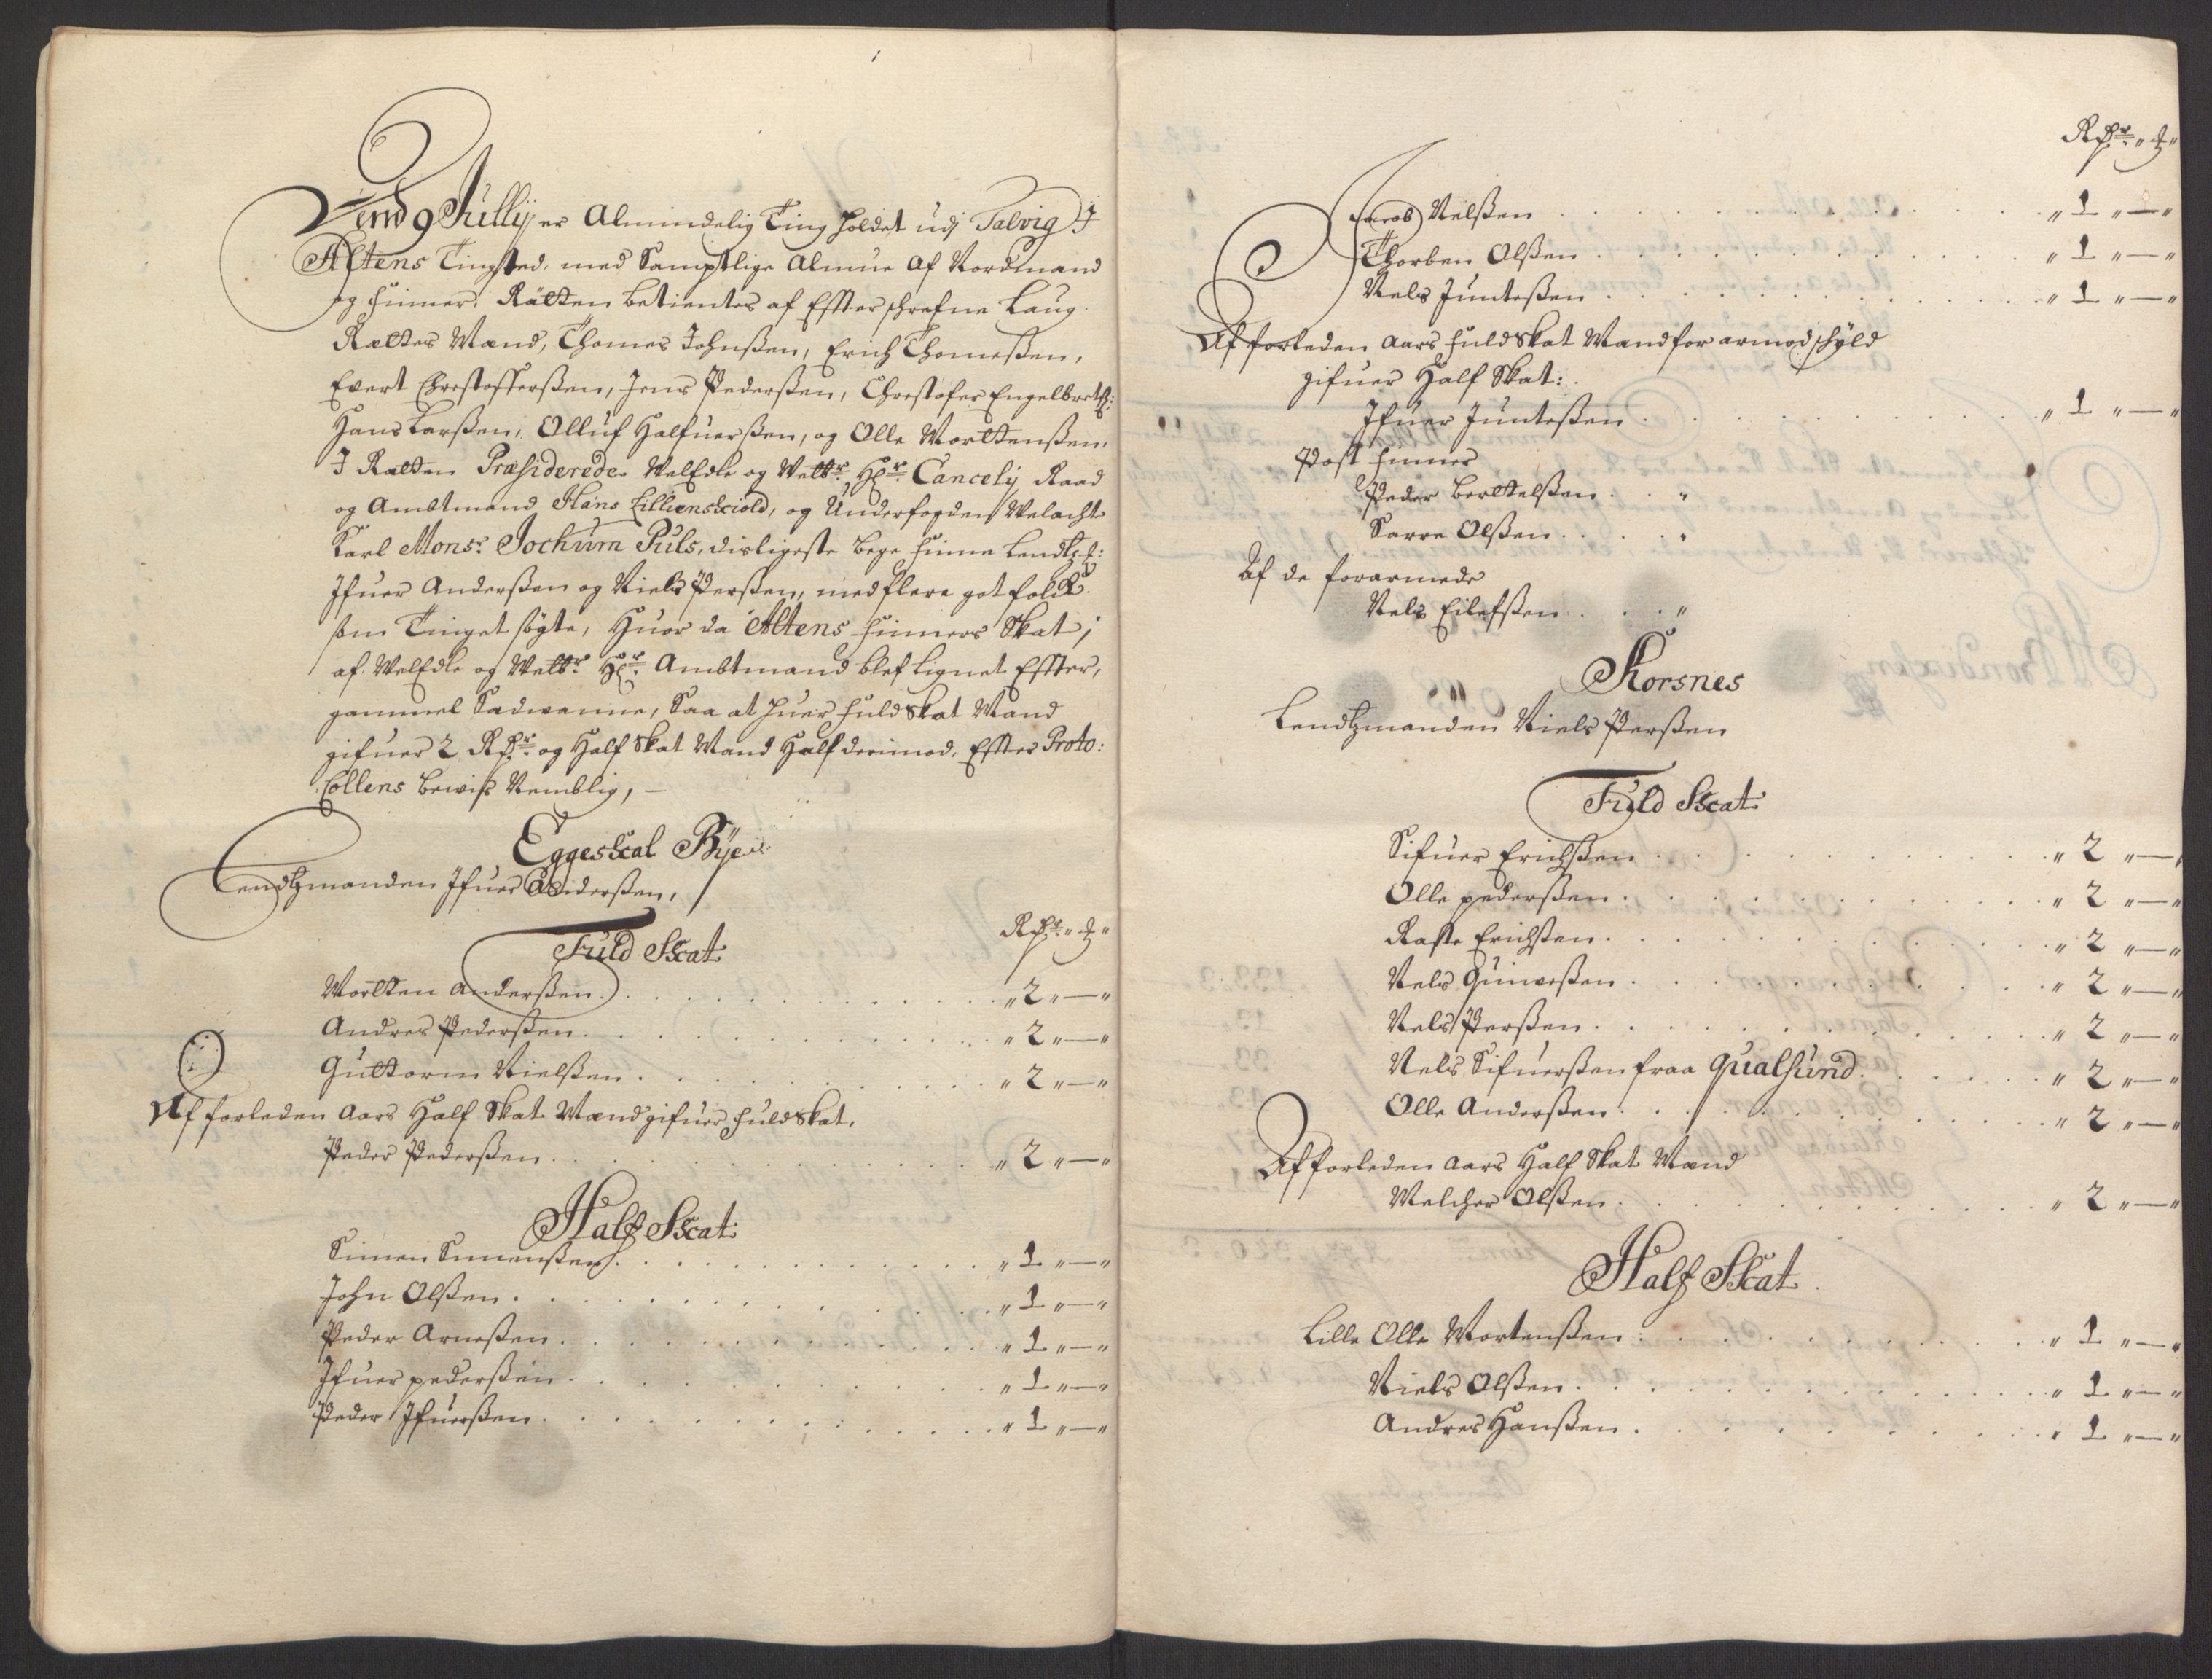 Dend 9 Jullij er Almindelig Ting holdet udj Talvig J
Altens Tingsted, med Samptlige Almue Af Nordmænd
og finner. Rætten betientes af Effterschrefne Laug
Rættes Mænd, Thomes Johnßen, Erich Thomeßen,
Evert Chrestofferßen, Jens Pederßen, Chrestofer Engelbretß:
Hans Larßen, Olluf Halfuerßen, og Olle Morttenßen.
J Rætten Præsiderede VelEdle og Velbr. Hr. Cancelij Raad
og Ambtmand Hans Lillienskiold, og Underfogden Velacht
Karl Monsr. Jochum Puls, disligeste bege finne Lendtzf:
Jfuer Anderßen og Niels Perßen, med flere got folck
som Tinget søgte, Huor da Altens finners Skat,
af VelEdle og Velbr. Hr. Ambtmand blef Lignet Effter,
gammel Sædwanne, Saa at huer fuld Skat Mand
gifuer 2 Rdr. og Half Skat Mand Half derimod, Effter Proto:
Collens bewiß Nemblig, —
Eggeskal Bÿe
Lendtzmanden Jfuer Anderßen,
Rdr. ß
Fuld Skat
Mortten Anderßen . . . „ 2 „ — „
Andres Pederßen . . . „ 2 „ — „
Guttorm Nielßen . . . „ 2 „ — „
Af forleden Aars Half Skat Mænd gifuer fuld Skat,
Peder Pederßen . . . „ 2 „ — „
Half Skat
Simen Simenßen . . . „ 1 „ — „
John Olßen . . . „ 1 „ — „
Peder Arneßen . . . „ 1 „ — „
Jfuer pederßen . . . „ 1 „ — „
Peder Jfuerßen . . . „ 1 „ — „
Rdr. „ ß „
Jacob Nelßen . . . „ 1 „ — „
Thorben Olßen . . . „ 1 „ — „
Nels Junteßen . . . „ 1 „ — „
Af forleden Aars fuld Skat Mænd for armod schyld
gifuer Half Skat:
Jfuer Junteßen . . . „ 1 „ — „
Post finner
Peder Berttelßen . . „
Sarre Olßen . . . „
Af de forarmede
Nels Eilefßen . . . „
Korsnes
Lendtzmanden Niels Perßen
Fuld Skat
Sifuer Erichßen . . . „ 2 „ — „
Olle pederßen . . . „ 2 „ — „
Raste Erichßen . . . „ 2 „ — „
Nels Guiveßen . . . „ 2 „ — „
Nels Perßen . . . „ 2 „ — „
Nels Sifuerßen fraa Qualsund . . . „ 2 „ — „
Olle Anderßen . . . „ 2 „ — „
Af forleden Aars Half Skat Mænd
Melcher Olßen . . . „ 2 „ — „
Half Skat
Lille Olle Mortenßen . . . „ 1 „ — „
Niels Olßen . . . „ 1 „ — „
Andres Hanßen . . . „ 1 „ — „